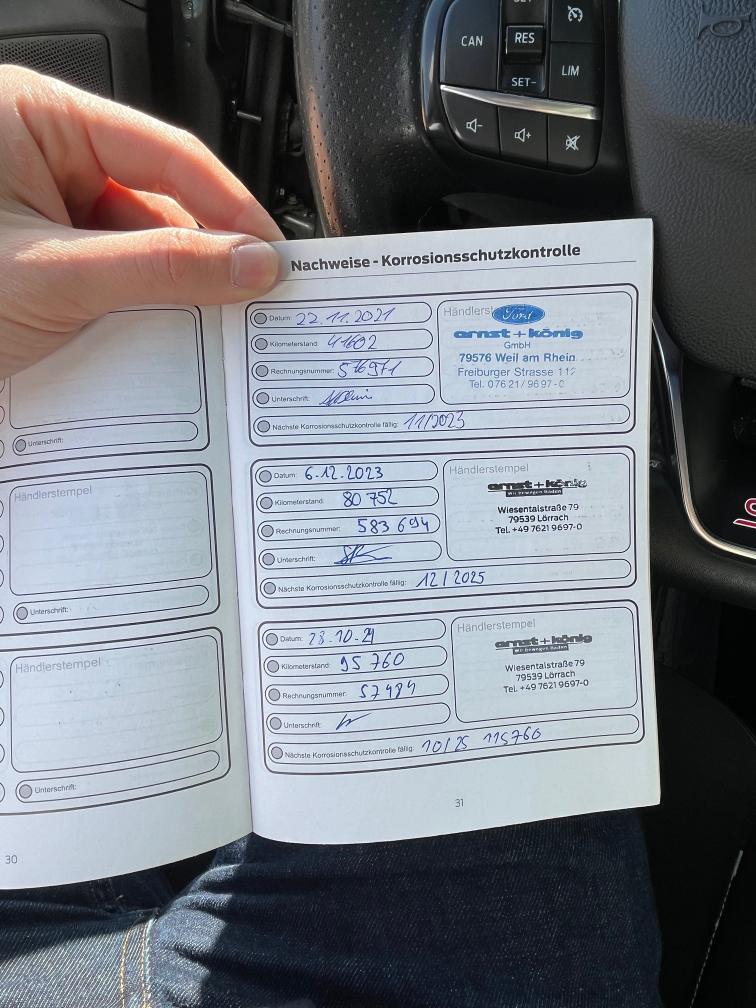 CAN
RES
SET-
LIM
Nachweise - Korrosionsschutzkontrolle
Datum: 22.11.2021
Kilometerstand: 41692
Rechnungsnummer: 576971
Unterschrift:
Nächste Korrosionsschutzkontrolle fällig: 11/2023
Ford
arnst+könig
GmbH
79576 Weil am Rhein
Freiburger Strasse 112
Tel. 07621/9697-0
Datum: 6.12.2023
Kilometerstand: 80 752
Rechnungsnummer: 583 694
Unterschrift:
Nächste Korrosionsschutzkontrolle fällig: 12/2025
Händlerstempel
arnst+könig
Wir bewegen Baden
Wiesentalstraße 79
79539 Lörrach
Tel. +49 7621 9697-0
Datum: 28.10.24
Kilometerstand: 95 760
Rechnungsnummer: 57484
Unterschrift:
Nächste Korrosionsschutzkontrolle fällig: 10/25 115760
Händlerstempel
arnst+könig
Wir bewegen Baden
Wiesentalstraße 79
79539 Lörrach
Tel. +49 7621 9697-0
31
Unterschrift:
Händlerstempel
Unterschrift:
Händlerstempel
Unterschrift:
30